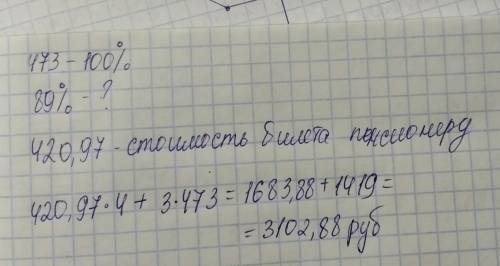 473 - 100%
89% - ?
420,97 - стоимость билета пенсионеру
420,97 · 4 + 3 · 473 = 1683,88 + 1419 =
= 3102,88 руб